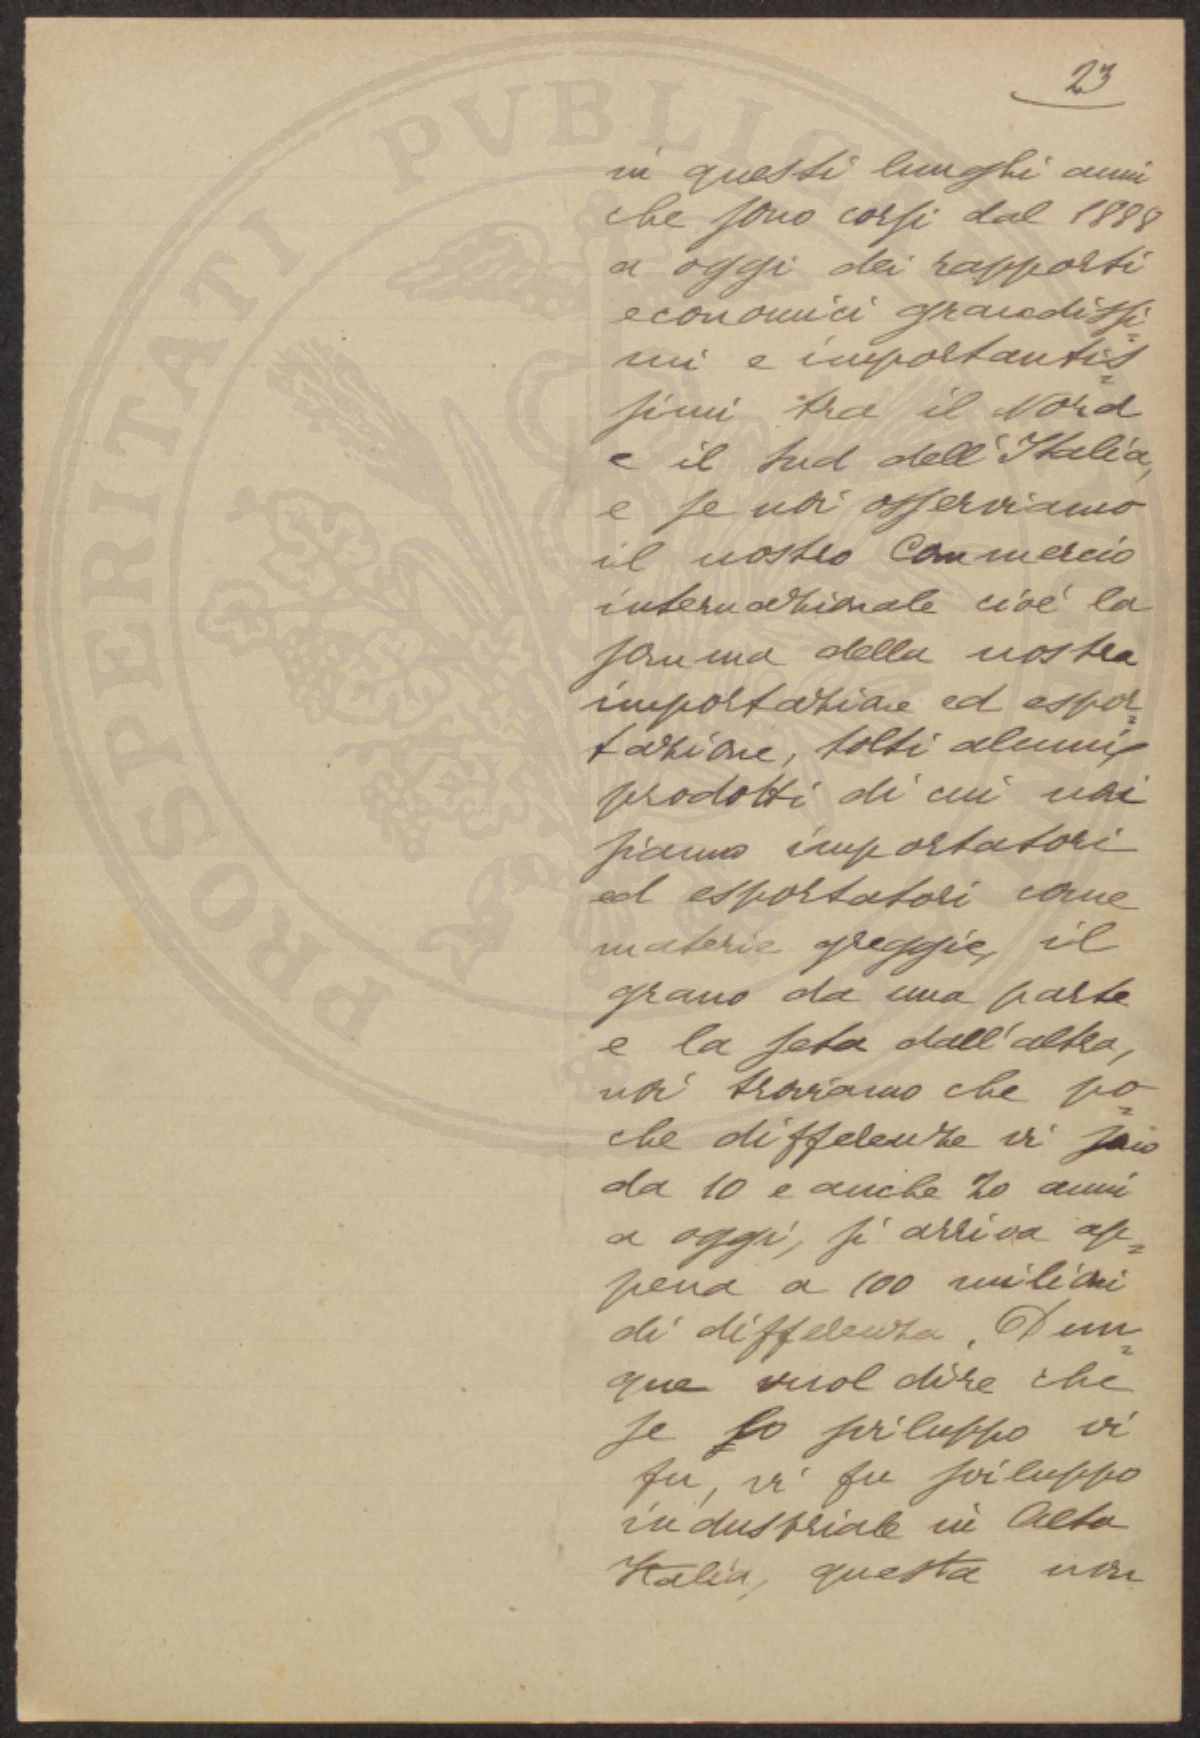 23
in questi lunghi anni
che sono corsi dal 1888
a oggi dei rapporti
economici grandissi=
mi e importantis=
simi tra il Nord
e il Sud dell'Italia,
e se noi osserviamo
il nostro Commercio
internazionale cioè la
somma della nostra
importazione ed espor=
tazione, tolti alcuni
prodotti di cui noi
siamo importatori
ed esportatori come
materie greggie, il
grano da una parte
e la seta dall'altra,
noi troviamo che po=
che differenze vi sono
da 10 e anche 20 anni
a oggi, si arriva ap=
pena a 100 milioni
di differenza. Dun=
que vuol dire che
se lo sviluppo vi
fu, vi fu sviluppo
industriale in Alta
Italia, questa non
PROSPERITATI PVBLICAE